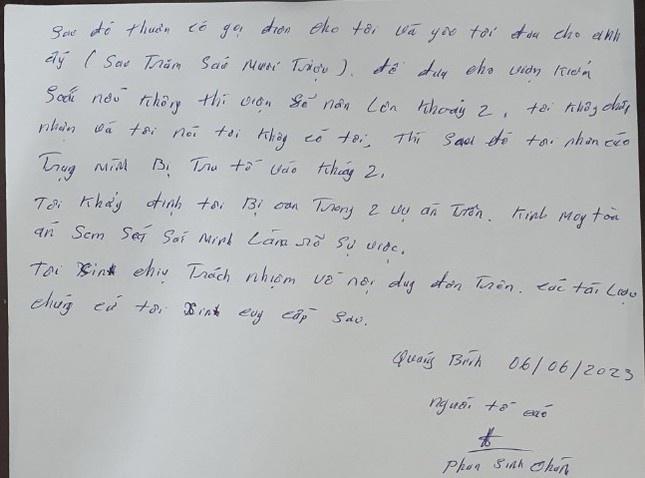 Sao đó thuấn có gọi điện cho tôi và yêo tôi đưa cho anh
ấy (Sao Trăm Sáo Mươi Triệu). để đưa cho viện kiểm
Soát nếu không thì viện sẽ nân lên khoảng 2, tôi không chấp
nhận và tôi nói tôi không có tội, Thì Sao đó tôi nhận cáo
Trạng mình Bị Tru tố vào kháng 2.
Tôi khảng định tôi Bị oan Trong 2 vụ án Trên. Kính mong tòa
án Sem Sét Sai minh Làm rõ Sự việc.
Tôi Xinh chiụ Trách nhiệm về nội dung đơn Trên. các tài Liệu
chứng cứ tôi Xinh cung cấp Sao.
Quảng Bình 06/06/2023
người tố cáo
Phan Sinh